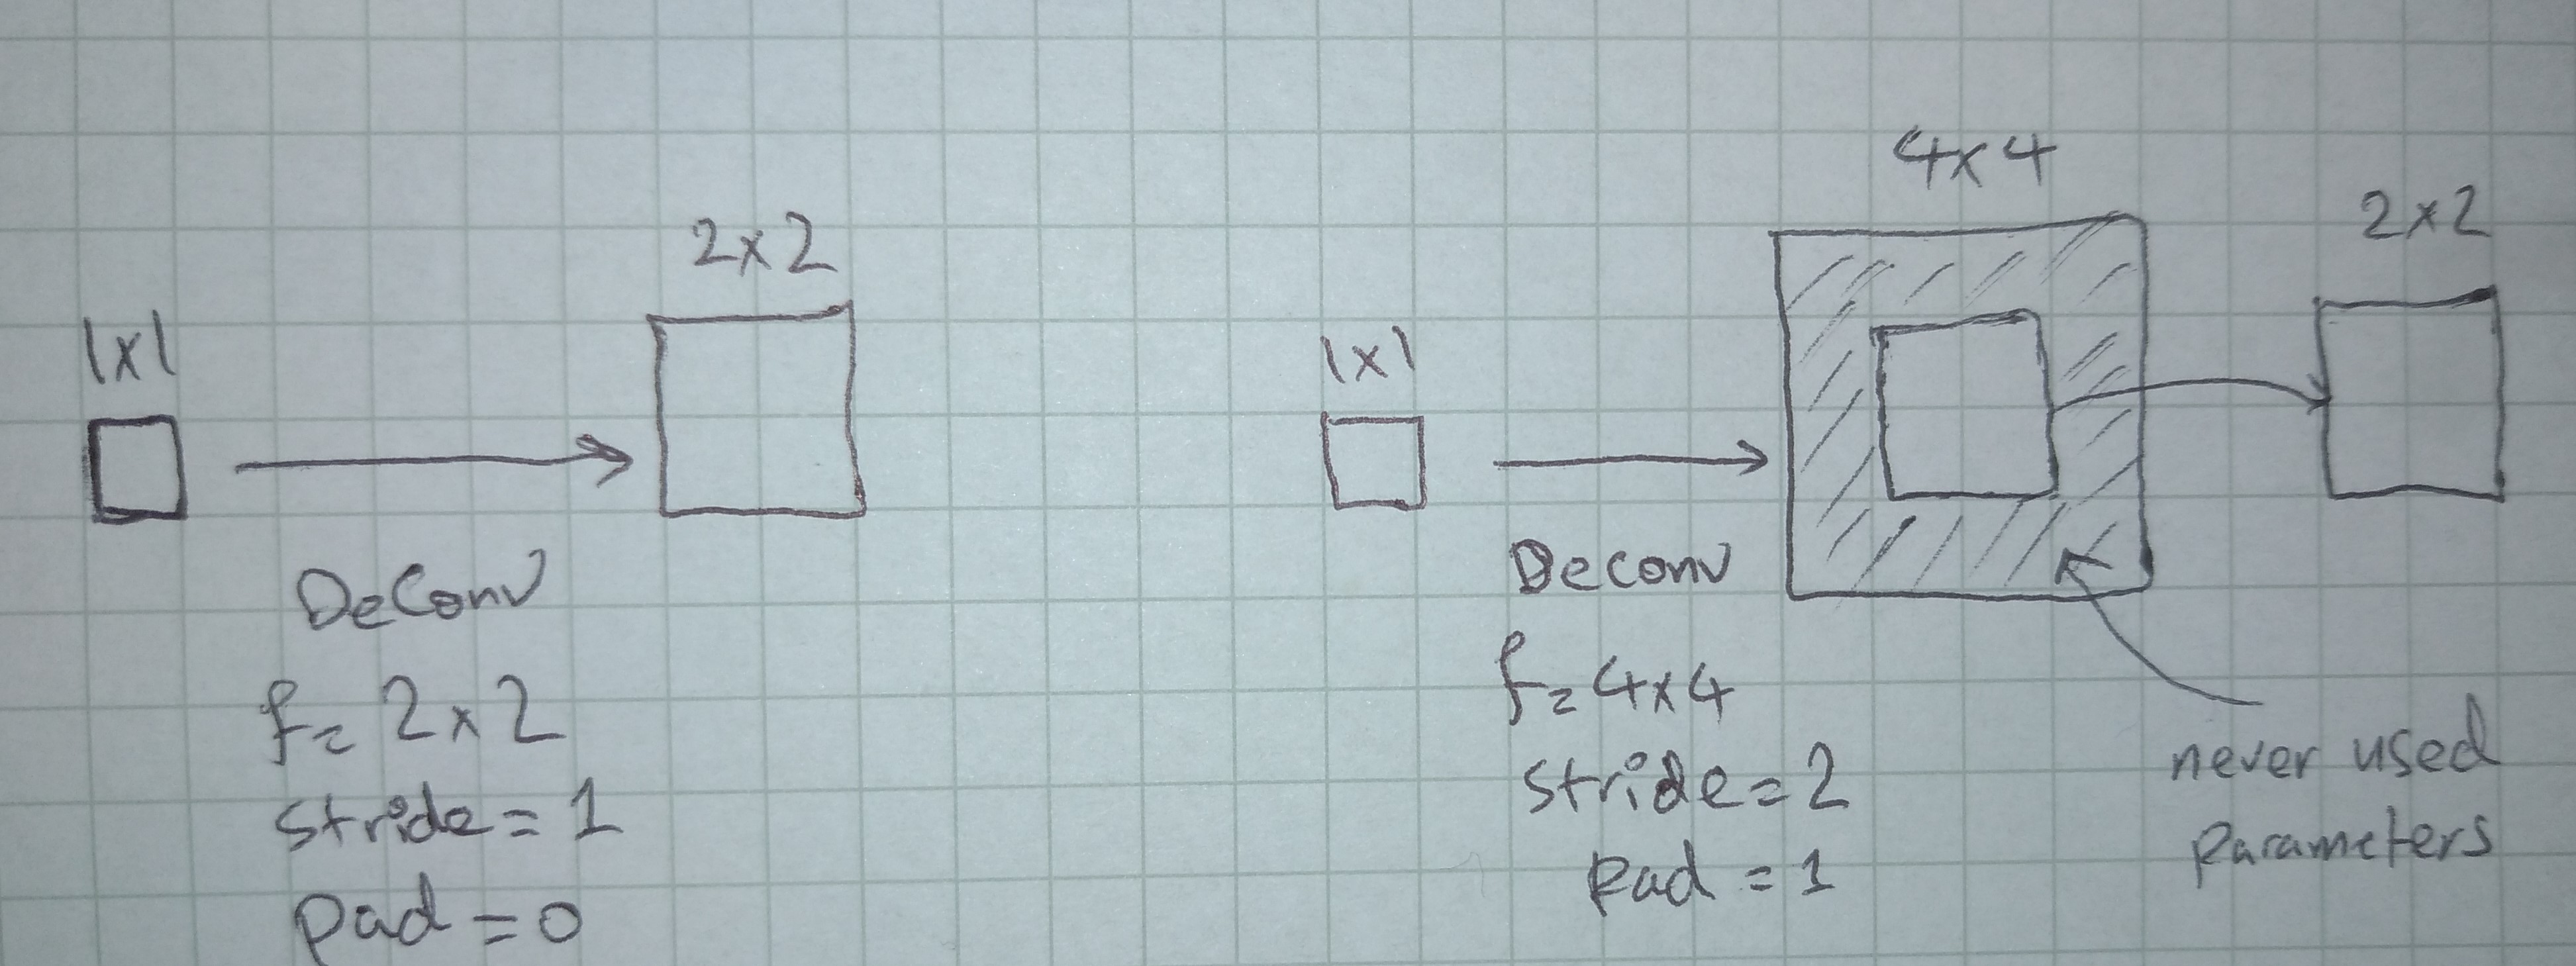 1x1
2x2
DeConv
f= 2x2
stride = 1
pad = 0
1x1
4x4
2x2
Deconv
f= 4x4
stride = 2
pad = 1
never used
parameters